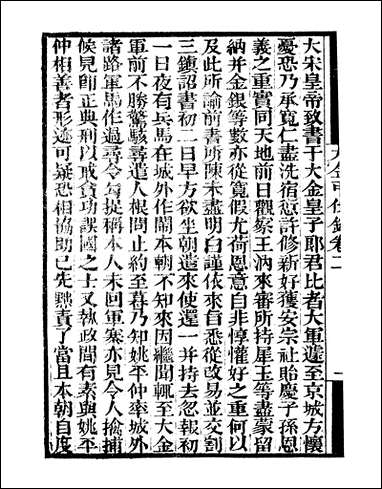 大宋皇帝致書于大金皇子郎君比者大軍遽至京城方懷
憂恐乃承寬仁盡洗宿愆許修新好獲安宗社貽慶子孫恩
義之重實同天地前日觀察王汭來審所持犀玉等盡蒙留
納并金銀等數亦從寬假尤荷恩意自非惇懽好之重何以
及此所諭前書所陳未盡明白謹依來旨悉從改易並交割
三鎮詔書初二日早方欲坐朝造來使還一并持去忽報初
一日夜有兵馬在城外作閙本朝不知來因繼聞輒至大金
軍前不勝驚駭尋遣人根問止約至暮乃知姚平仲率城外
諸路軍馬作過尋令勾提稱本人未回軍寨亦見令人擒捕
候見卽正典刑以戒貪功誤國之士又執政間有素與姚平
仲相善者形迹可疑恐相協助已先黜責了當且本朝自度
大金弔伐錄卷二
一